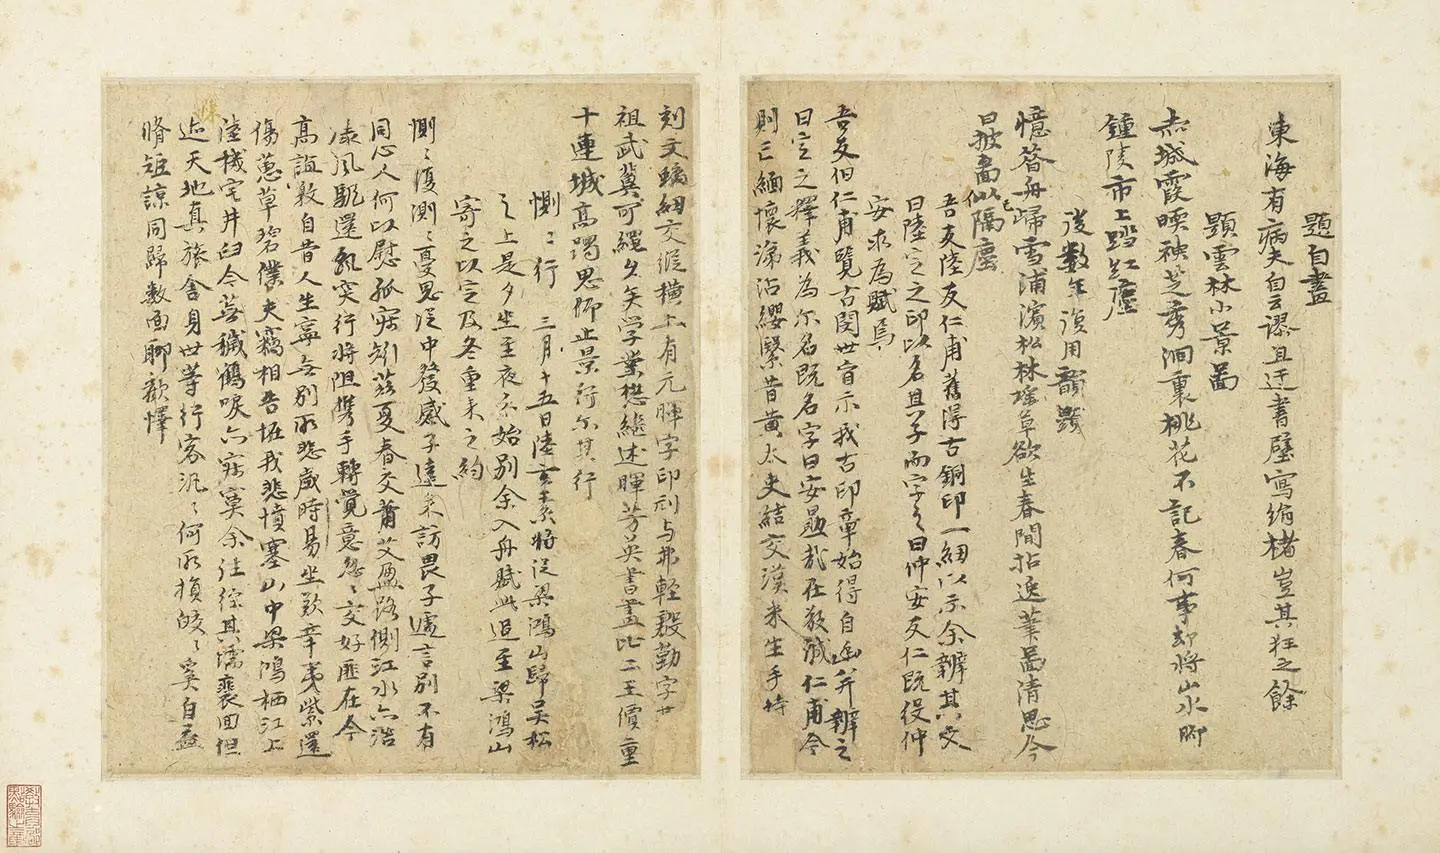 題自畫
東海有病夫自云謬且迂書壁寫絹楮豈其狂之餘
題雲林小景畵
赤城霞暎秧芝秀洞裏桃花不記春何事却將山水脚
鍾陵市上踏紅塵
後數年復用韻題
憶昔舟歸雪浦濱松林瑤草欲生春間拈逸筆圖清思今
日披圖似隔塵
吾友陸友仁甫舊得古銅印一紐以示余辨其文
曰陸定之印以名其子而字之曰仲安友仁既役仲
安求為賦焉
吾友伯仁甫覽古閱世宦示我古印章始得自幽并辨之
曰定之釋義為爾名既名字曰安勗哉在敬誠仁甫今
則亡緬懷涕沾纓繄昔黃太史結交漢米生手持
刻文瑞紐交縱横上有元暉字印刓与弗輕殷勤字
祖武冀可繩久矣學業懋繼述暉芳英書畫比二王價重
十連城高躅思仰止景行尔其行
惻〻行 三月十五日陸玄素將從梁鴻山歸吳松
之上是夕坐至夜分始別余入舟賦此追至梁鴻山
寄之以定及冬重来之約
惻〻復測〻憂思從中發感子遠来訪畏子遽言別不有
同心人何以慰孤寂矧茲夏春交蕭艾盈路側江水亦浩
風颿還飄突行將阻攜手轉覺意忽〻交好匪在今
高誼敦自昔人生寧無別所悲歲時易坐歎辛夷紫還
傷蕙草碧僕夫竊相告唁我悲憤塞山中梁鴻栖江上
陸機宅井臼今蕪穢鶴唳亦寂寞余往綜其濡裹回但
迹天地真旅舍身世等行客汎〻何所損皎〻奚自益
脩短諒同歸數面聊歡懌